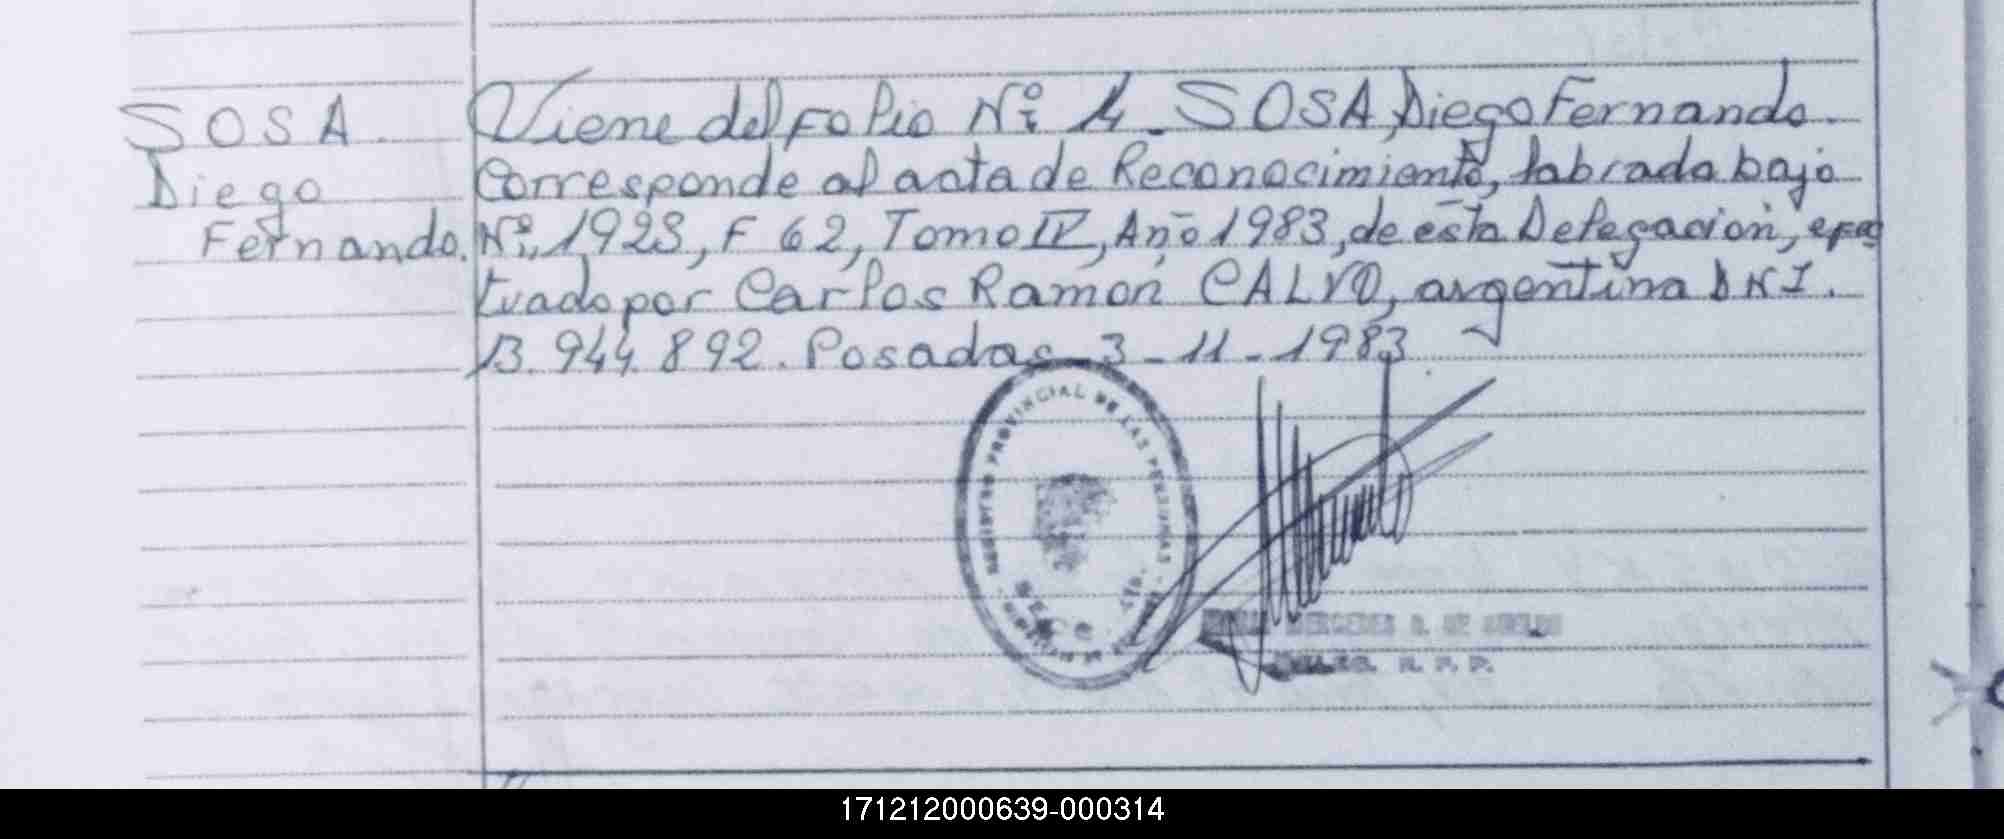 SOSA
Diego
Fernando.
Viene del Folio Nº 4. SOSA, Diego Fernando.
Corresponde al acta de Reconocimiento, labrada bajo
Nº 1923, F 62, Tomo IV, Año 1983, de esta Delegación, efec
tuado por Carlos Ramón CALVO, argentina DNI.
13.944.892. Posadas 3-11-1983
REGISTRO PROVINCIAL DE LAS PERSONAS
MERCEDES
R. P. P.
171212000639-000314